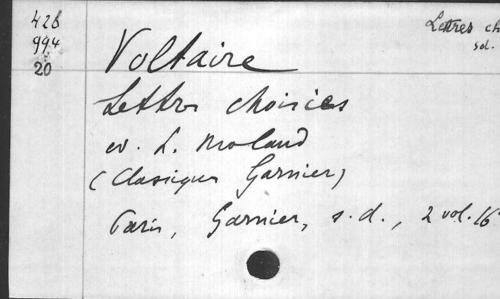 426
994
20
Lettres ch
sd.
Voltaire
Lettres choisies
ev. L. Moland
(Classiques Garnier)
Paris, Garnier, s.d., 2 vol. 16